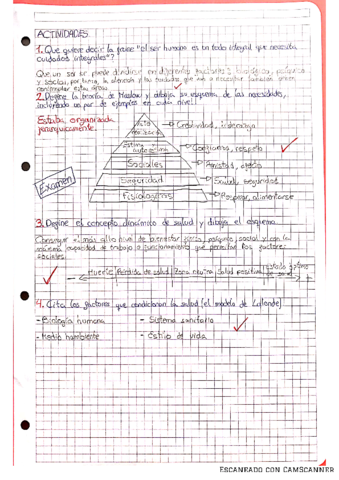 ACTIVIDADES
1. Que quiere decir la frase "el ser humano es un todo integral que necesita
cuidados integrales"?
Que un ser se puede dividir en diferentes factores: biológico, psíquico
y social, por tanto, la atención y los cuidados que van a necesitar también deben
contemplar estas áreas
2. Define la teoría de Maslow y dibuja su esquema de las necesidades,
incluyendo un par de ejemplos en cada nivel.
Está organizada
jerárquicamente.
Auto
→ Creatividad, liderazgo
Estima
autoestima
→ Confianza, respeto
Sociales
→ Amistad, afecto
Examen
Seguridad
→ Salud, seguridad
Fisiológicas
→ Respirar, alimentarse
3. Define el concepto dinámico de salud y dibuja el esquema
Conseguir el más alto nivel de bienestar físico, psíquico, social y con la
máxima capacidad de trabajo o funcionamiento que permitan los factores
sociales.
Muerte Pérdida de salud Zona neutra Salud positiva Estado óptimo
4. Cita los factores que condicionan la salud (el modelo de Lalonde)
- Biología humana - Sistema sanitario
- Medio hambiente - Estilo de vida
ESCANEADO CON CAMSCANNER